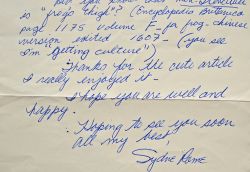 is "frog's thigh"? (Encyclopedia Britannica
page 1175 Volume F
version edited 1603) (you see
I'm "getting culture")
Thanks for the cute article
I really enjoyed it -
I hope you are well and
happy.
Hoping to see you soon
all my best,
Sydne Rome